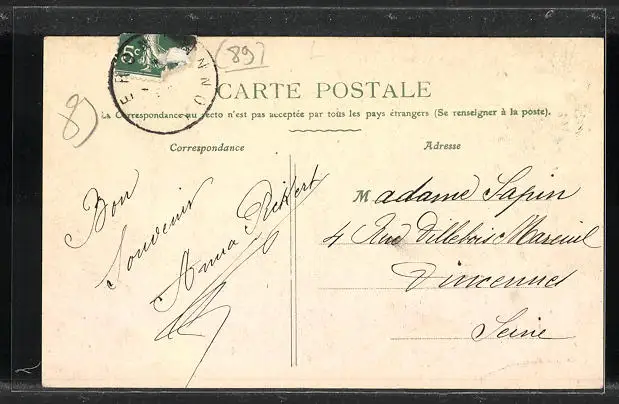 5c
(89)
89
CARTE POSTALE
La Correspondance au recto n'est pas acceptée par tous les pays étrangers (Se renseigner à la poste).
Correspondance
Adresse
Bon
Souvenir
Anna
Madame Sapin
4 Rue Villebois Mareuil
Vincennes
Seine